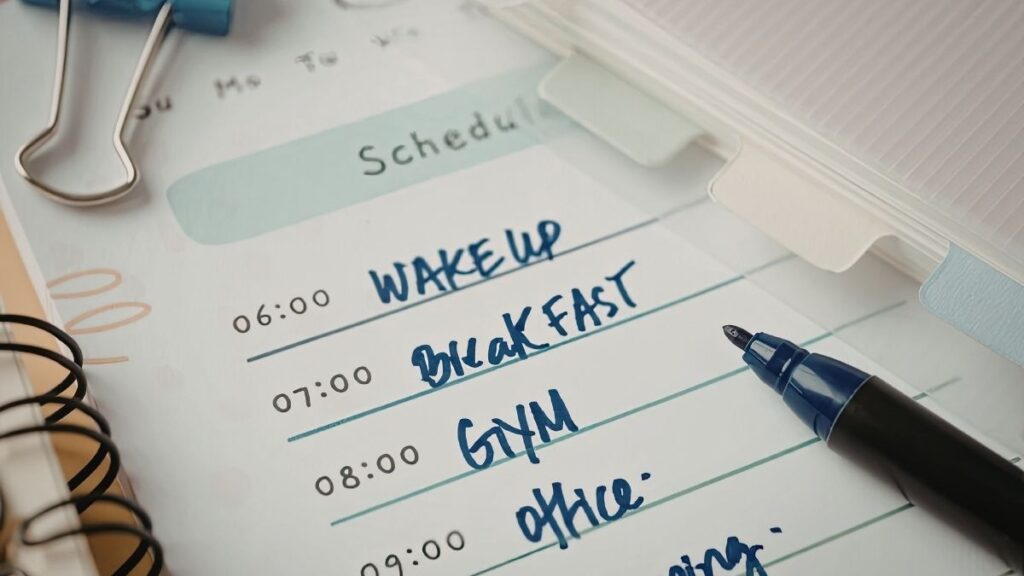 Su Mo Tu We
Schedul
06:00 WAKE UP
07:00 BreakFAST
08:00 GYM
09:00 office.